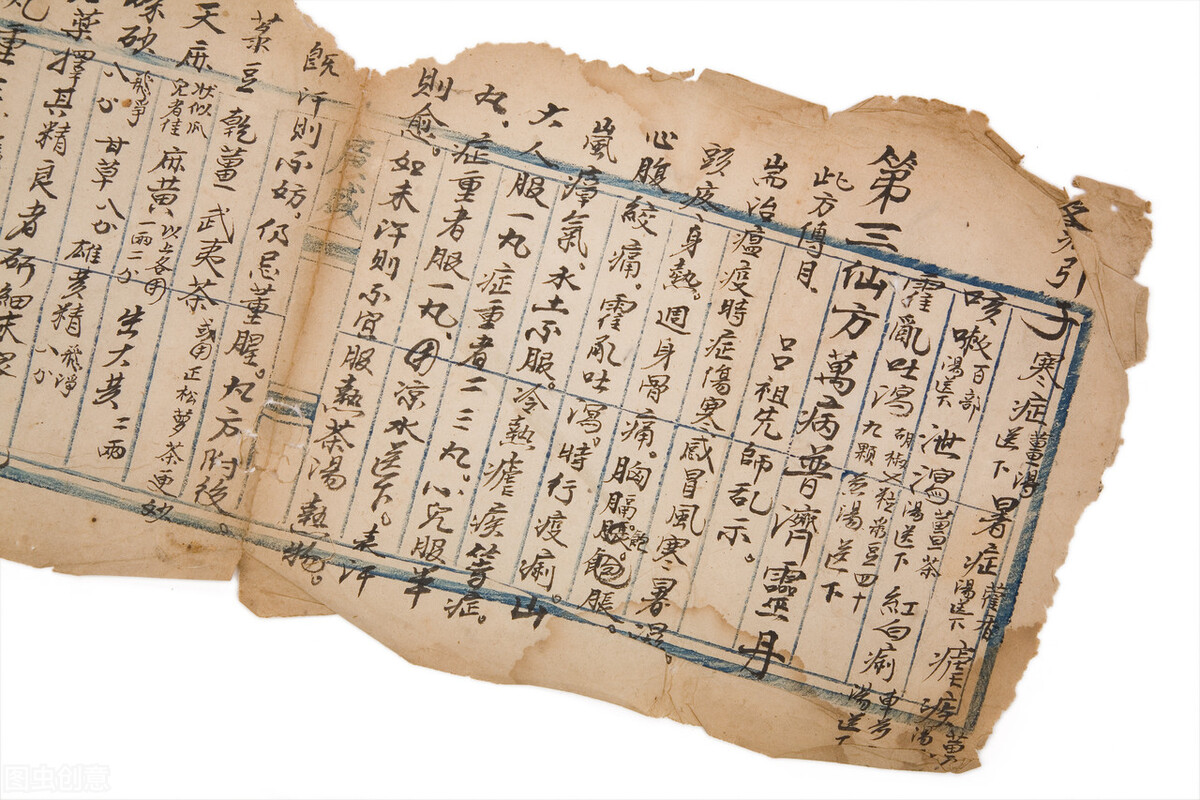 引子 寒症薑湯送下 暑症藿香湯送下 瘧疾
咳嗽百部湯送下 泄瀉薑豆茶湯送下 紅白痢車前湯送下
霍亂吐瀉胡椒九顆菉豆四十煎湯送下
第三仙方萬病普濟靈丹
此方傳自 呂祖先師乩示。
耑治瘟疫時症傷寒感冒風寒暑濕。
頭疼、身熱。週身骨痛。胸膈飽脹。
心腹絞痛。霍亂吐瀉。時行疫痢。山
嵐瘴氣、水土不服。冷熱瘧疾等症。
大人服一丸症重者二三丸。小兒服半
丸、症重者服一丸、用凉水送下。表汗
則愈。如未汗則不宜服熱茶湯熱物。
廣盛
既汗則不妨，仍忌葷腥。丸方附後。
菉豆 乾薑 武夷茶或用正松蘿茶更妙
天麻狀似爪兒者佳 麻黃、以上各用一兩二分 生大黄二兩
砂飛淨八分 甘草八分 雄黄精飛淨八分
藥擇其精良者研細末
丸重
圖虫创意